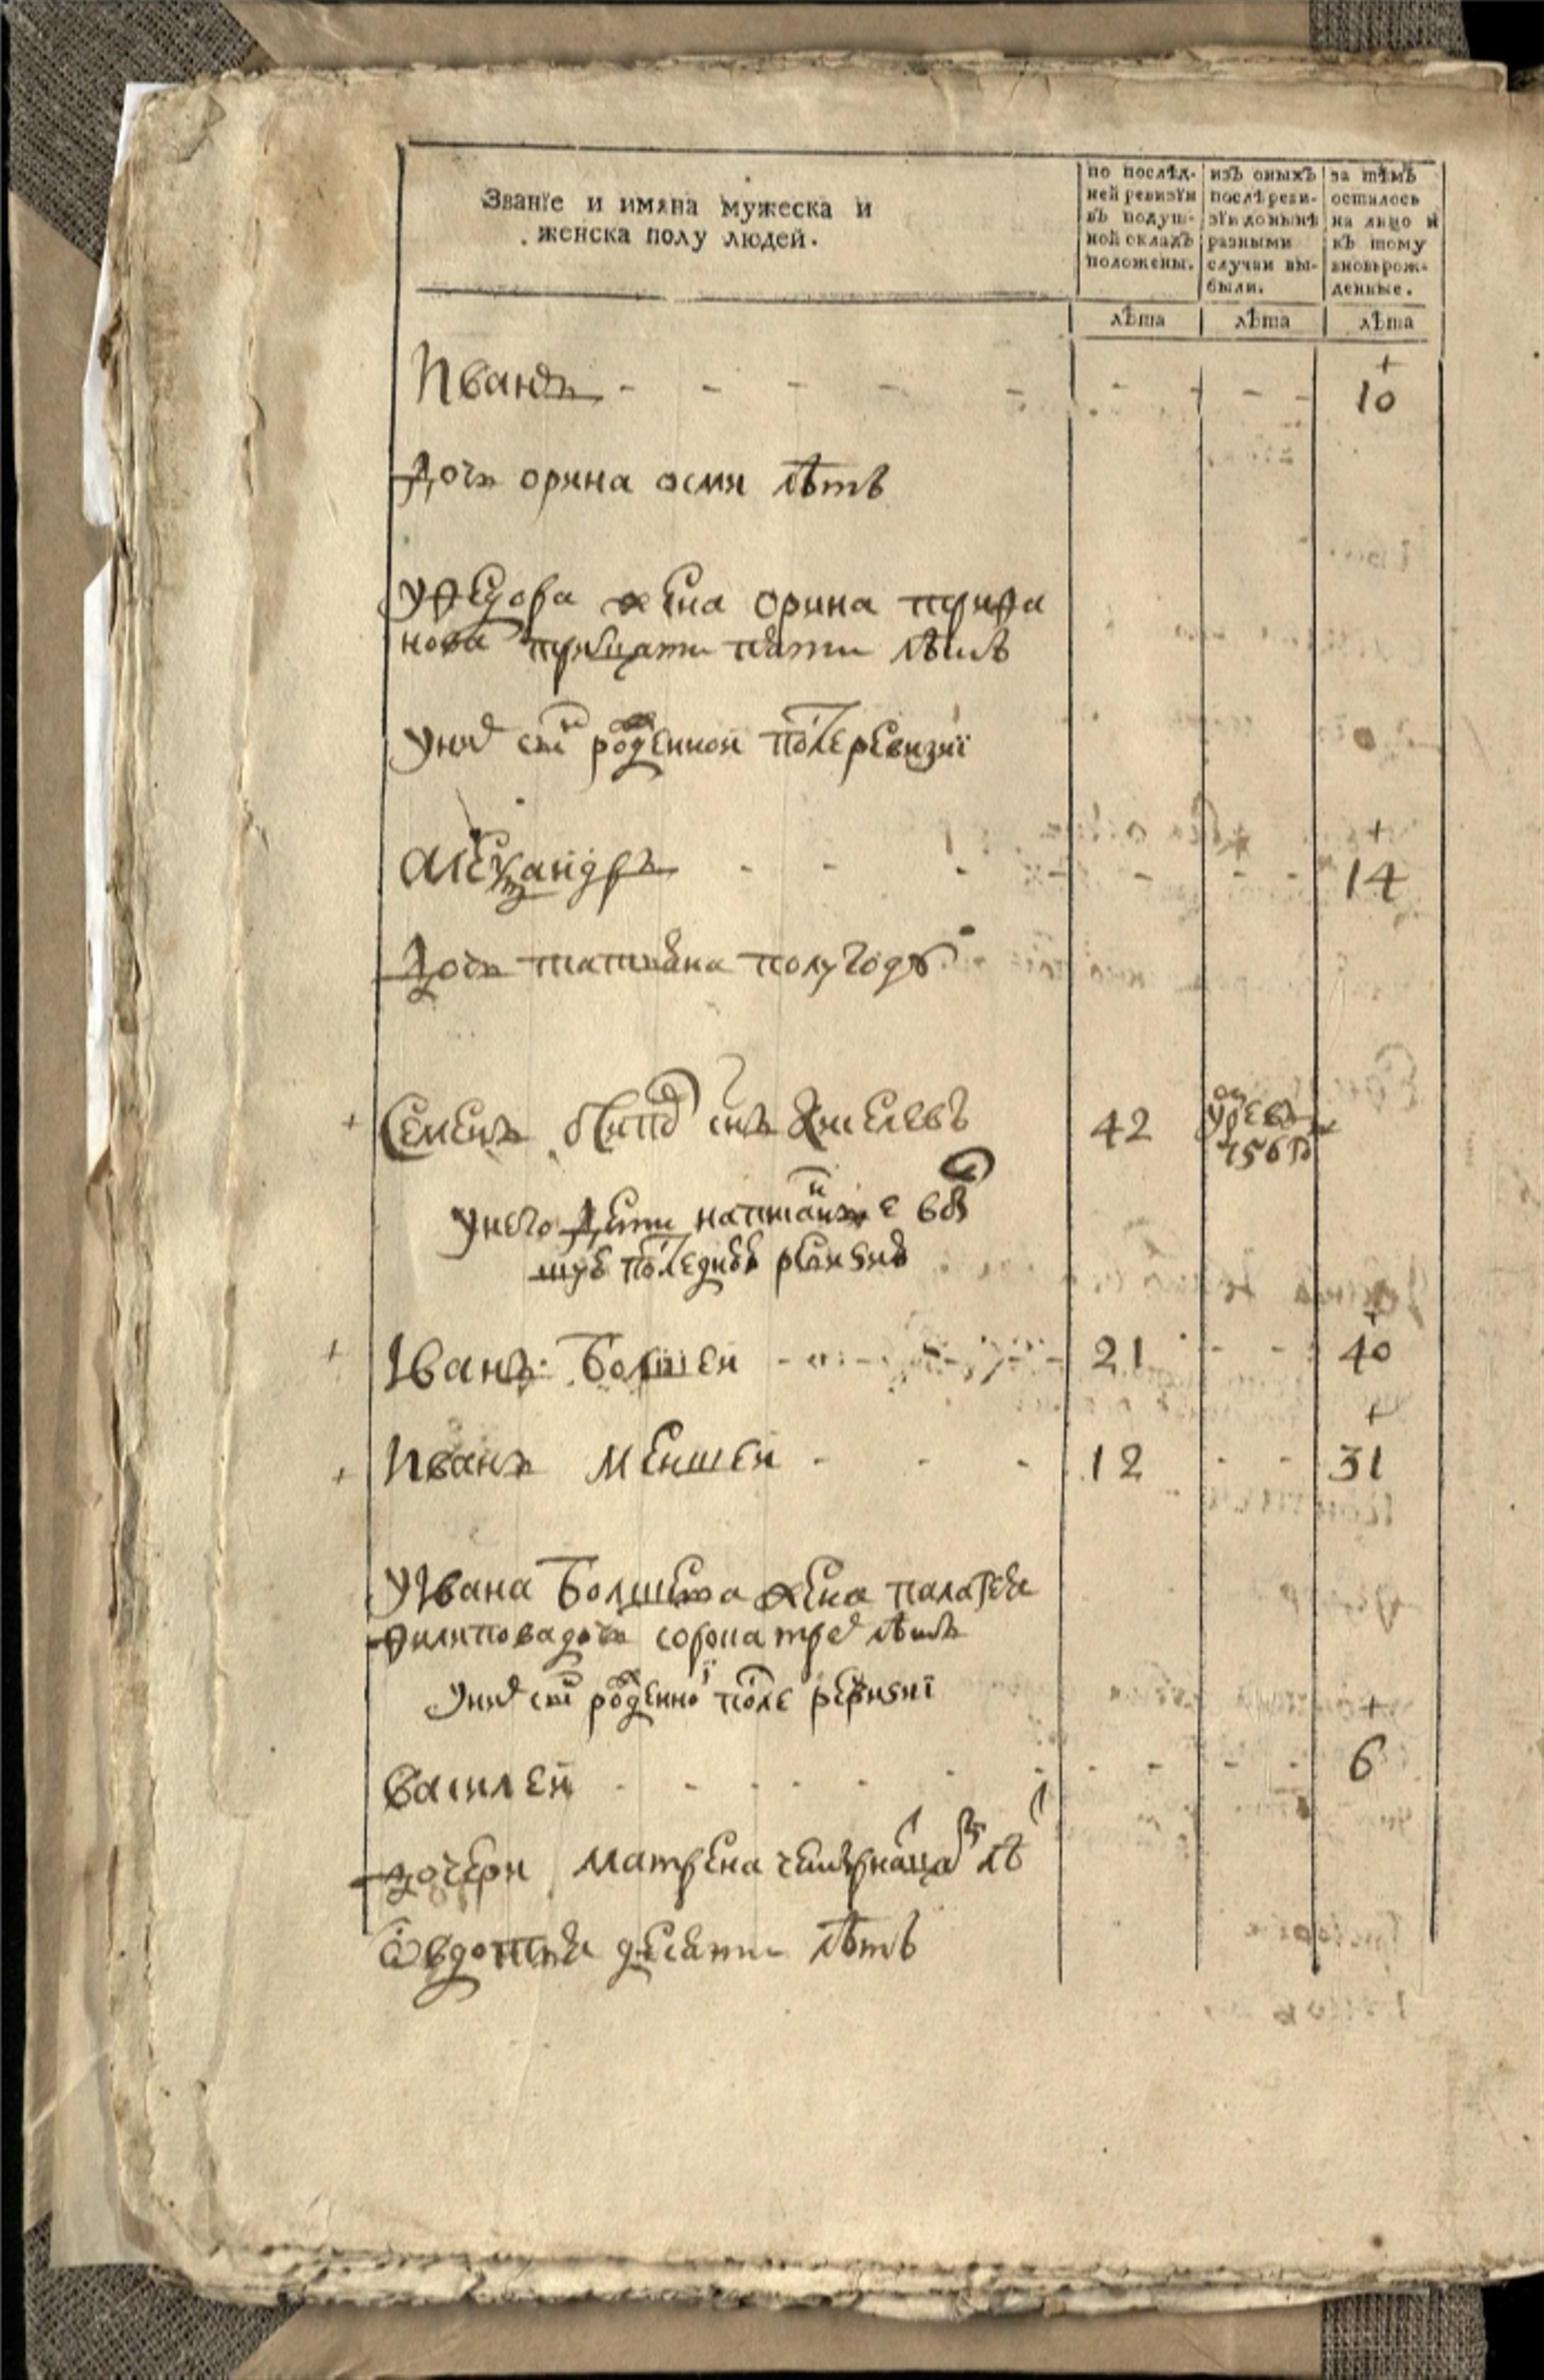 Званїе и имяна мужеска и
женска полу людей.
по послѣд-
ней ревизїи
въ подуш-
ной окладъ
положены.
изъ оныхъ
послѣ реви-
зїи донынѣ
разными
случаи вы-
были.
за тѣмъ
осталось
на лицо и
къ тому
вновьрож-
денные.
лѣта лѣта лѣта
Иванъ - - - - - - - - 10
Дочь орина осми лѣтъ
У Федора жена орина трифа
нова тритцати пяти лѣтъ
Унихъ сынъ рожденной послеревизиї
Алеѯандръ - - - - - - 14
Дочь татьяна полугоду
Семенъ снъ Киселевъ 42 умре въ
756 г
Унего дети написанные в
последнюю ревизию
Иванъ Болшей - 21 - - 40
Иванъ Меншей - - - 12 - - 31
УИвана Болшева жена палагея
филиповадочь сорокатрехъ лѣтъ
Унихъ сынъ рожденной после ревизиї
Василей - - - - - - - - - - 6
дочери матрена четырнацати лѣ
Овдотья десяти лѣтъ